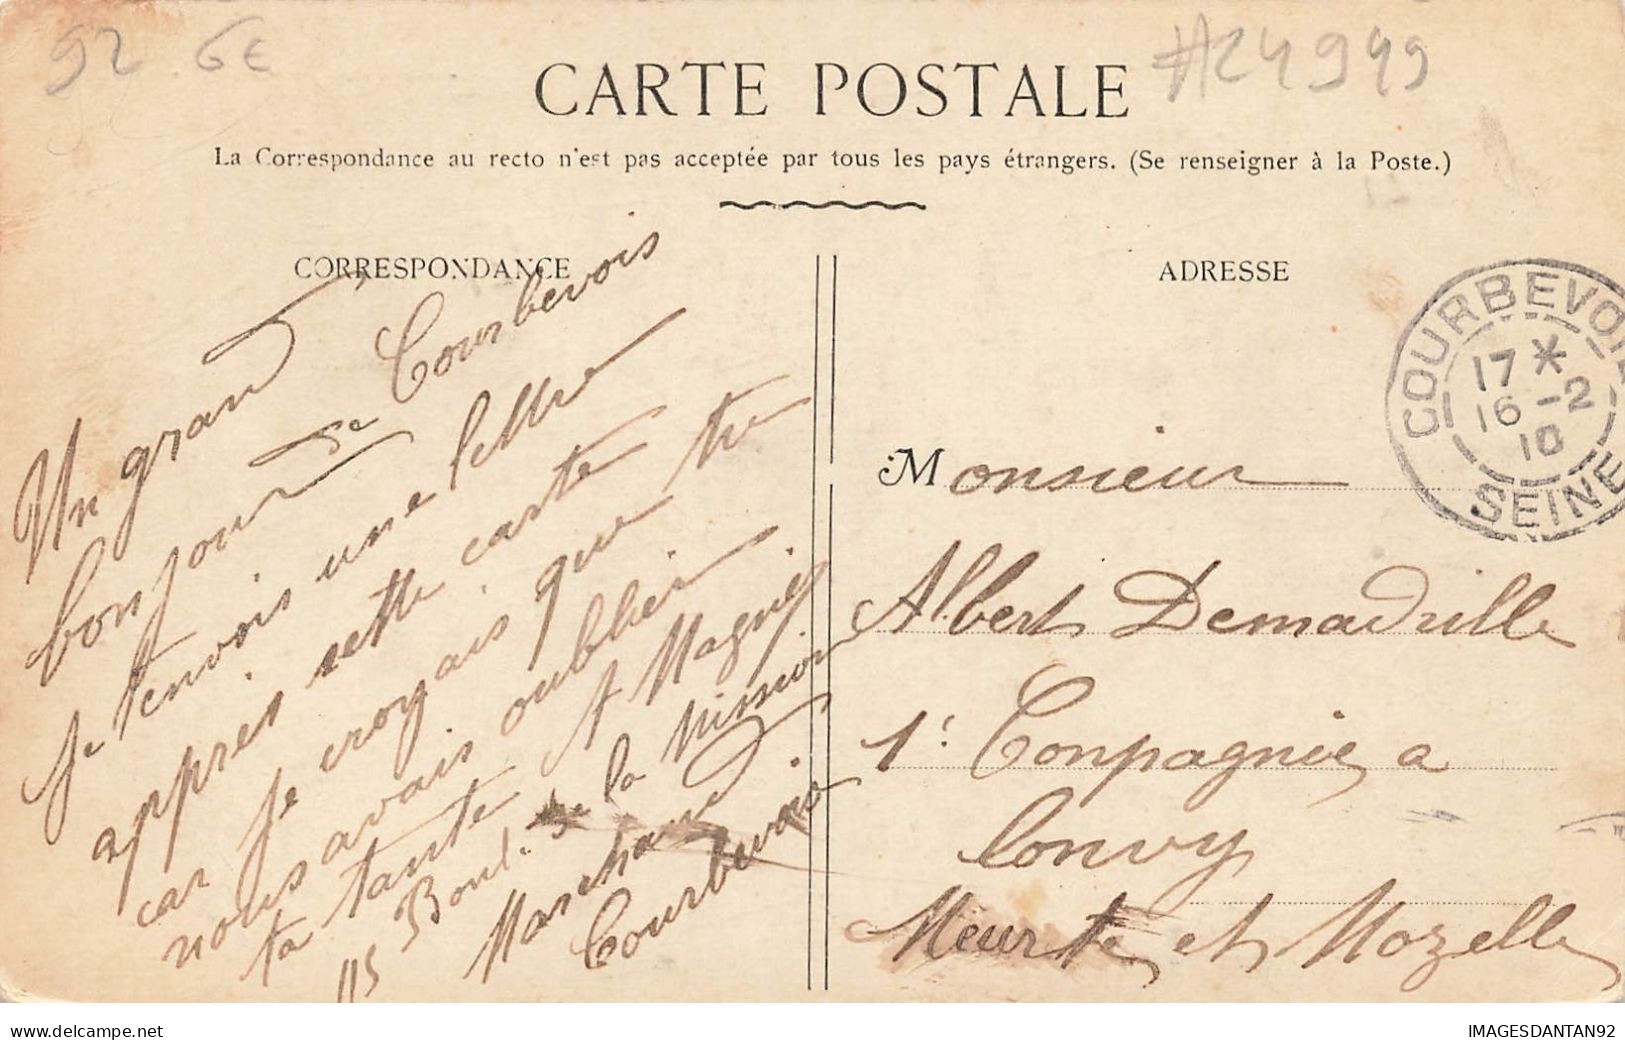 92 6€
#24949
CARTE POSTALE
La Correspondance au recto n'est pas acceptée par tous les pays étrangers. (Se renseigner à la Poste.)
CORRESPONDANCE
Un grand
bonjour de Courbevois
Je tenvois une lettre
appres sette carte
car je croyais que tu
nous avais oublier
ta tante A Magnié
115 Boul. de la Mission
Marchand
Courbevois
ADRESSE
COURBEVOIE
17*
16-2
10
SEINE
Monsieur
Albert Demadrille
1e Conpagnie a
Lonvy
Meurte et Mozelle
www.delcampe.net
IMAGESDANTAN92